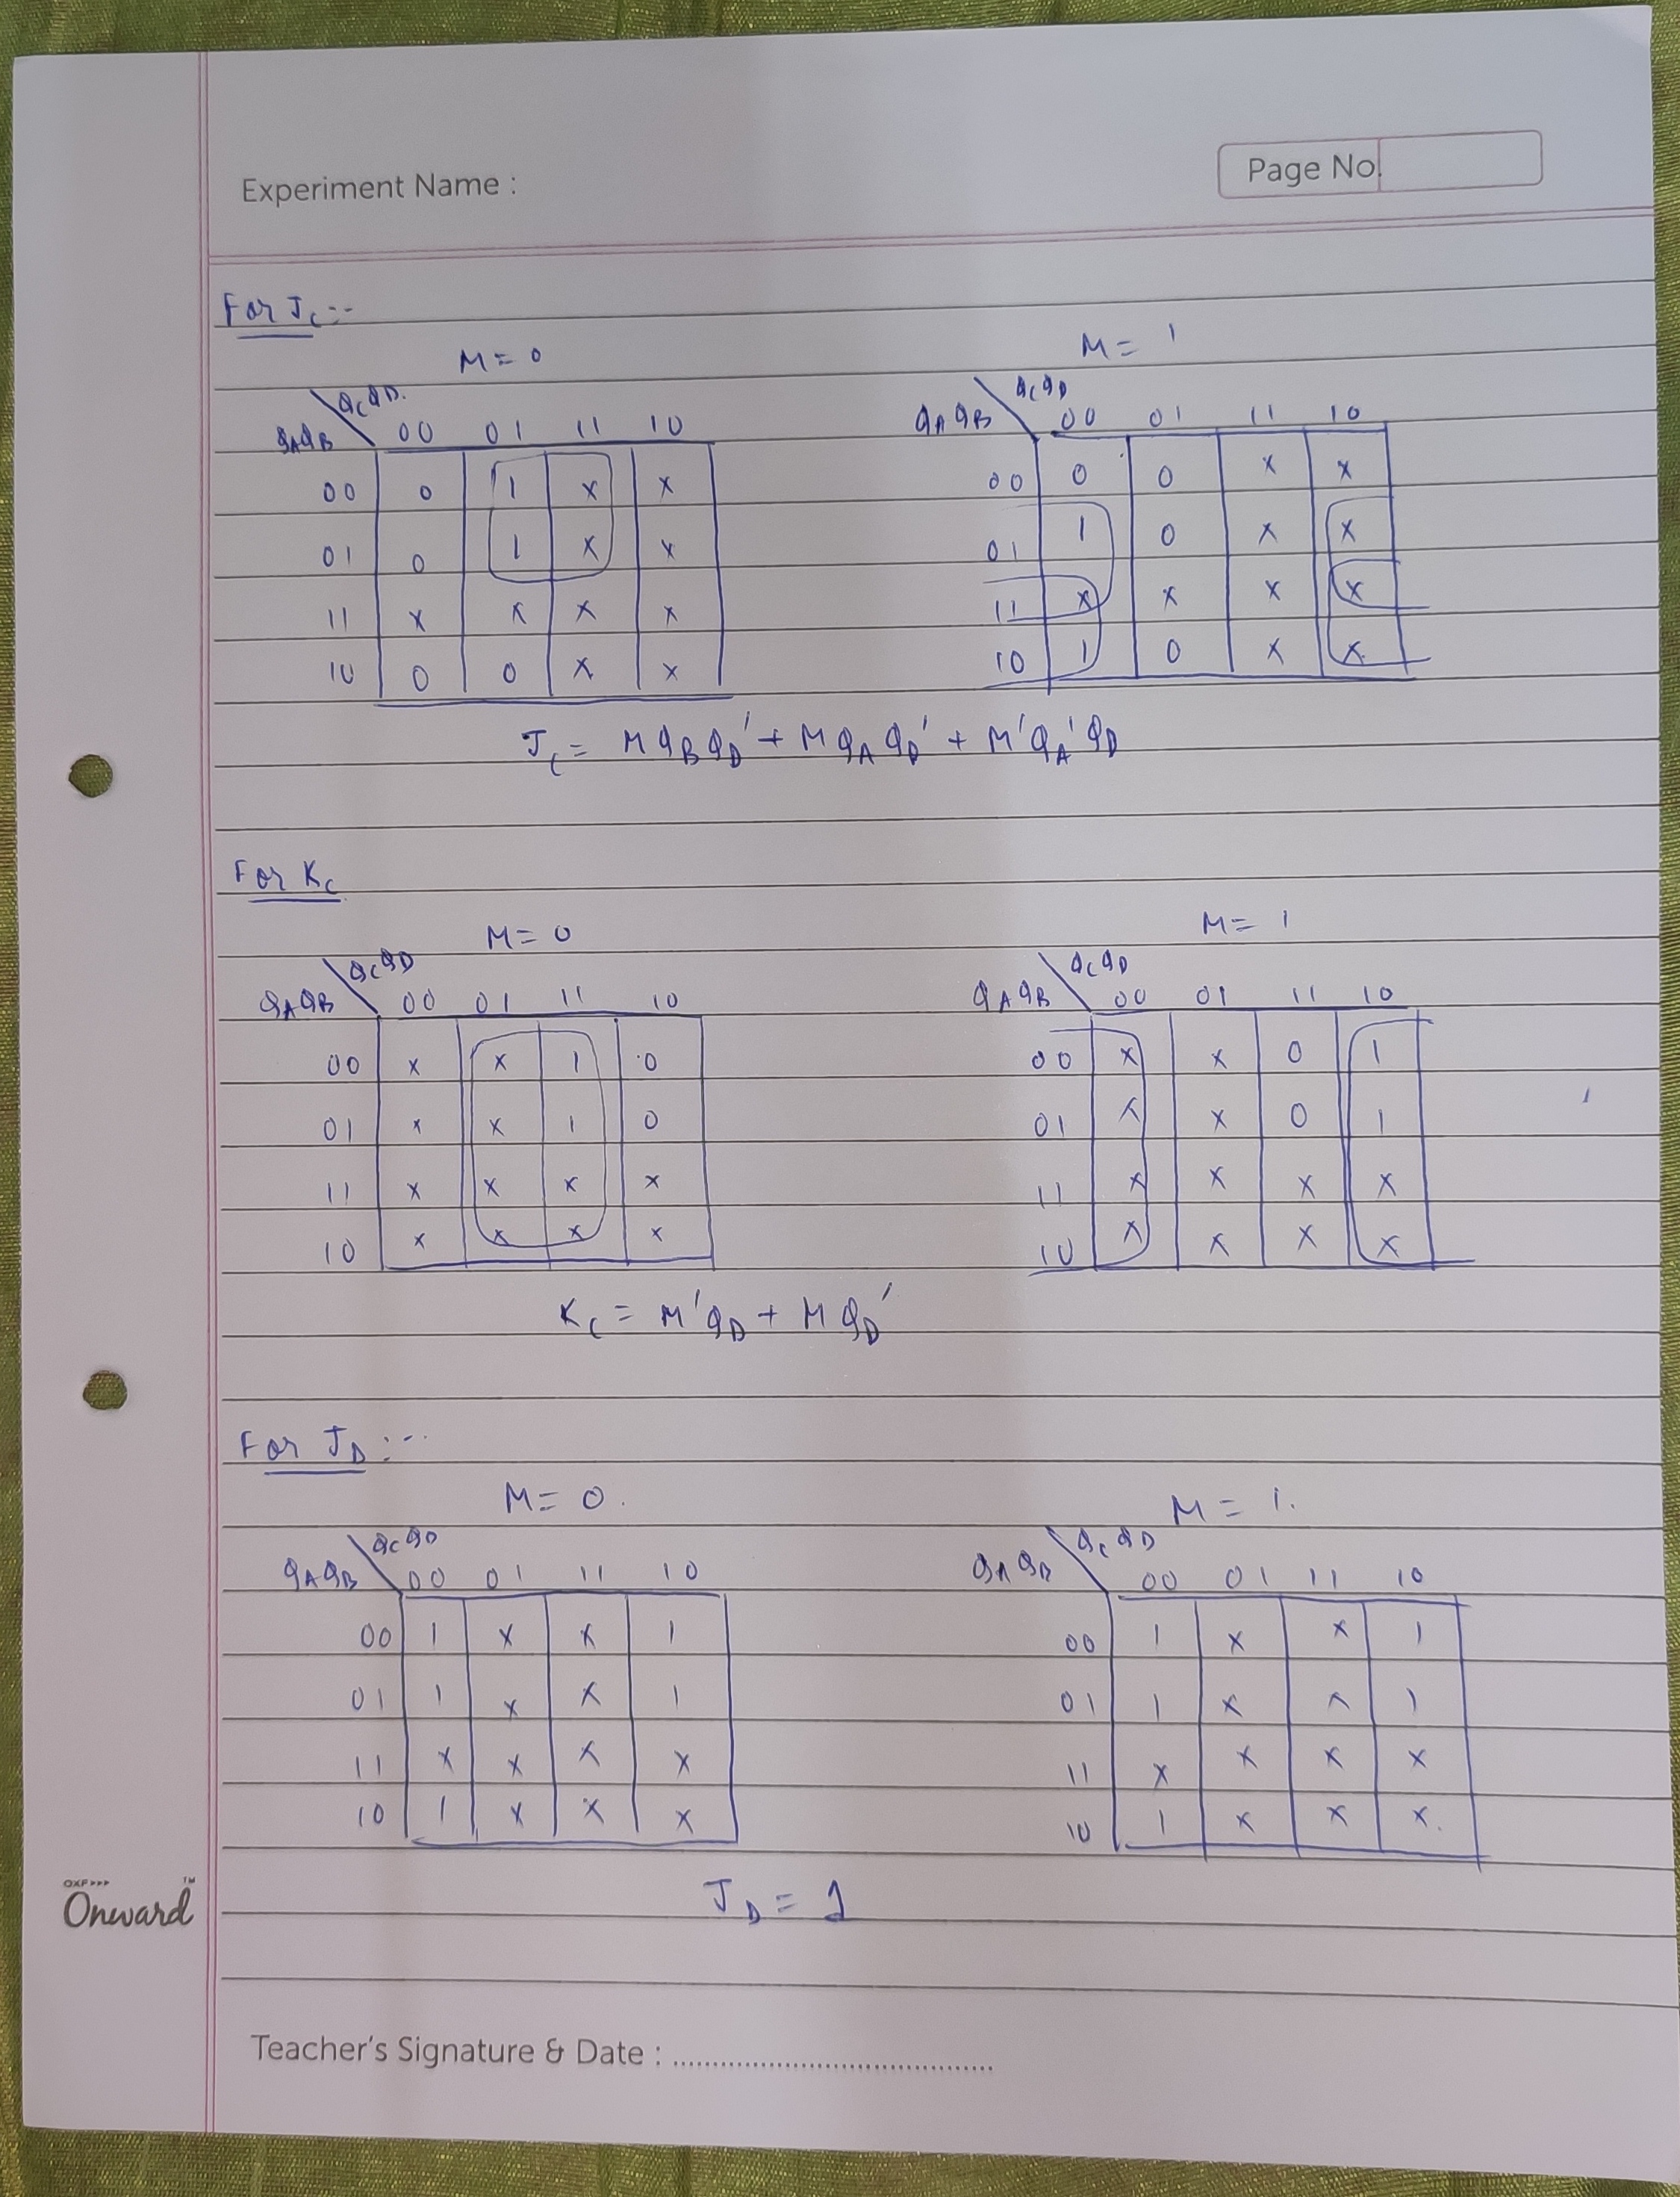 Experiment Name :
Page No.
For J_C :-
M = 0
M = 1
Q_C Q_D
Q_A Q_B 00 01 11 10
00 0 1 x x
01 0 1 x x
11 x x x x
10 0 0 x x
Q_C Q_D
Q_A Q_B 00 01 11 10
00 0 0 x x
01 1 0 x x
11 x x x x
10 1 0 x x
J_C = M Q_B Q_D' + M Q_A Q_D' + M' Q_A' Q_D
For K_C
M = 0
M = 1
Q_C Q_D
Q_A Q_B 00 01 11 10
00 x x 1 0
01 x x 1 0
11 x x x x
10 x x x x
Q_C Q_D
Q_A Q_B 00 01 11 10
00 x x 0 1
01 x x 0 1
11 x x x x
10 x x x x
K_C = M' Q_D + M Q_D'
For J_D :-
M = 0.
M = 1.
Q_C Q_D
Q_A Q_B 00 01 11 10
00 1 x x 1
01 1 x x 1
11 x x x x
10 1 x x x
Q_C Q_D
Q_A Q_B 00 01 11 10
00 1 x x 1
01 1 x x 1
11 x x x x
10 1 x x x.
J_D = 1
OXF>>>
Onward™
Teacher's Signature & Date : ......................................